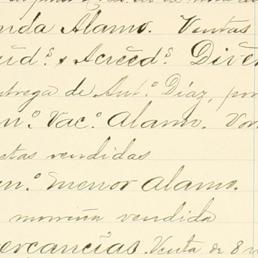 nda Alamo. Ventas
ud.s x Acreed.s Diver
ntrega de Ant.o Diaz, por
n.o Vac.o Alamo. Vor
etas vendidas
en.o menor Alamo.
morena vendida
ercancías. Venta de 8